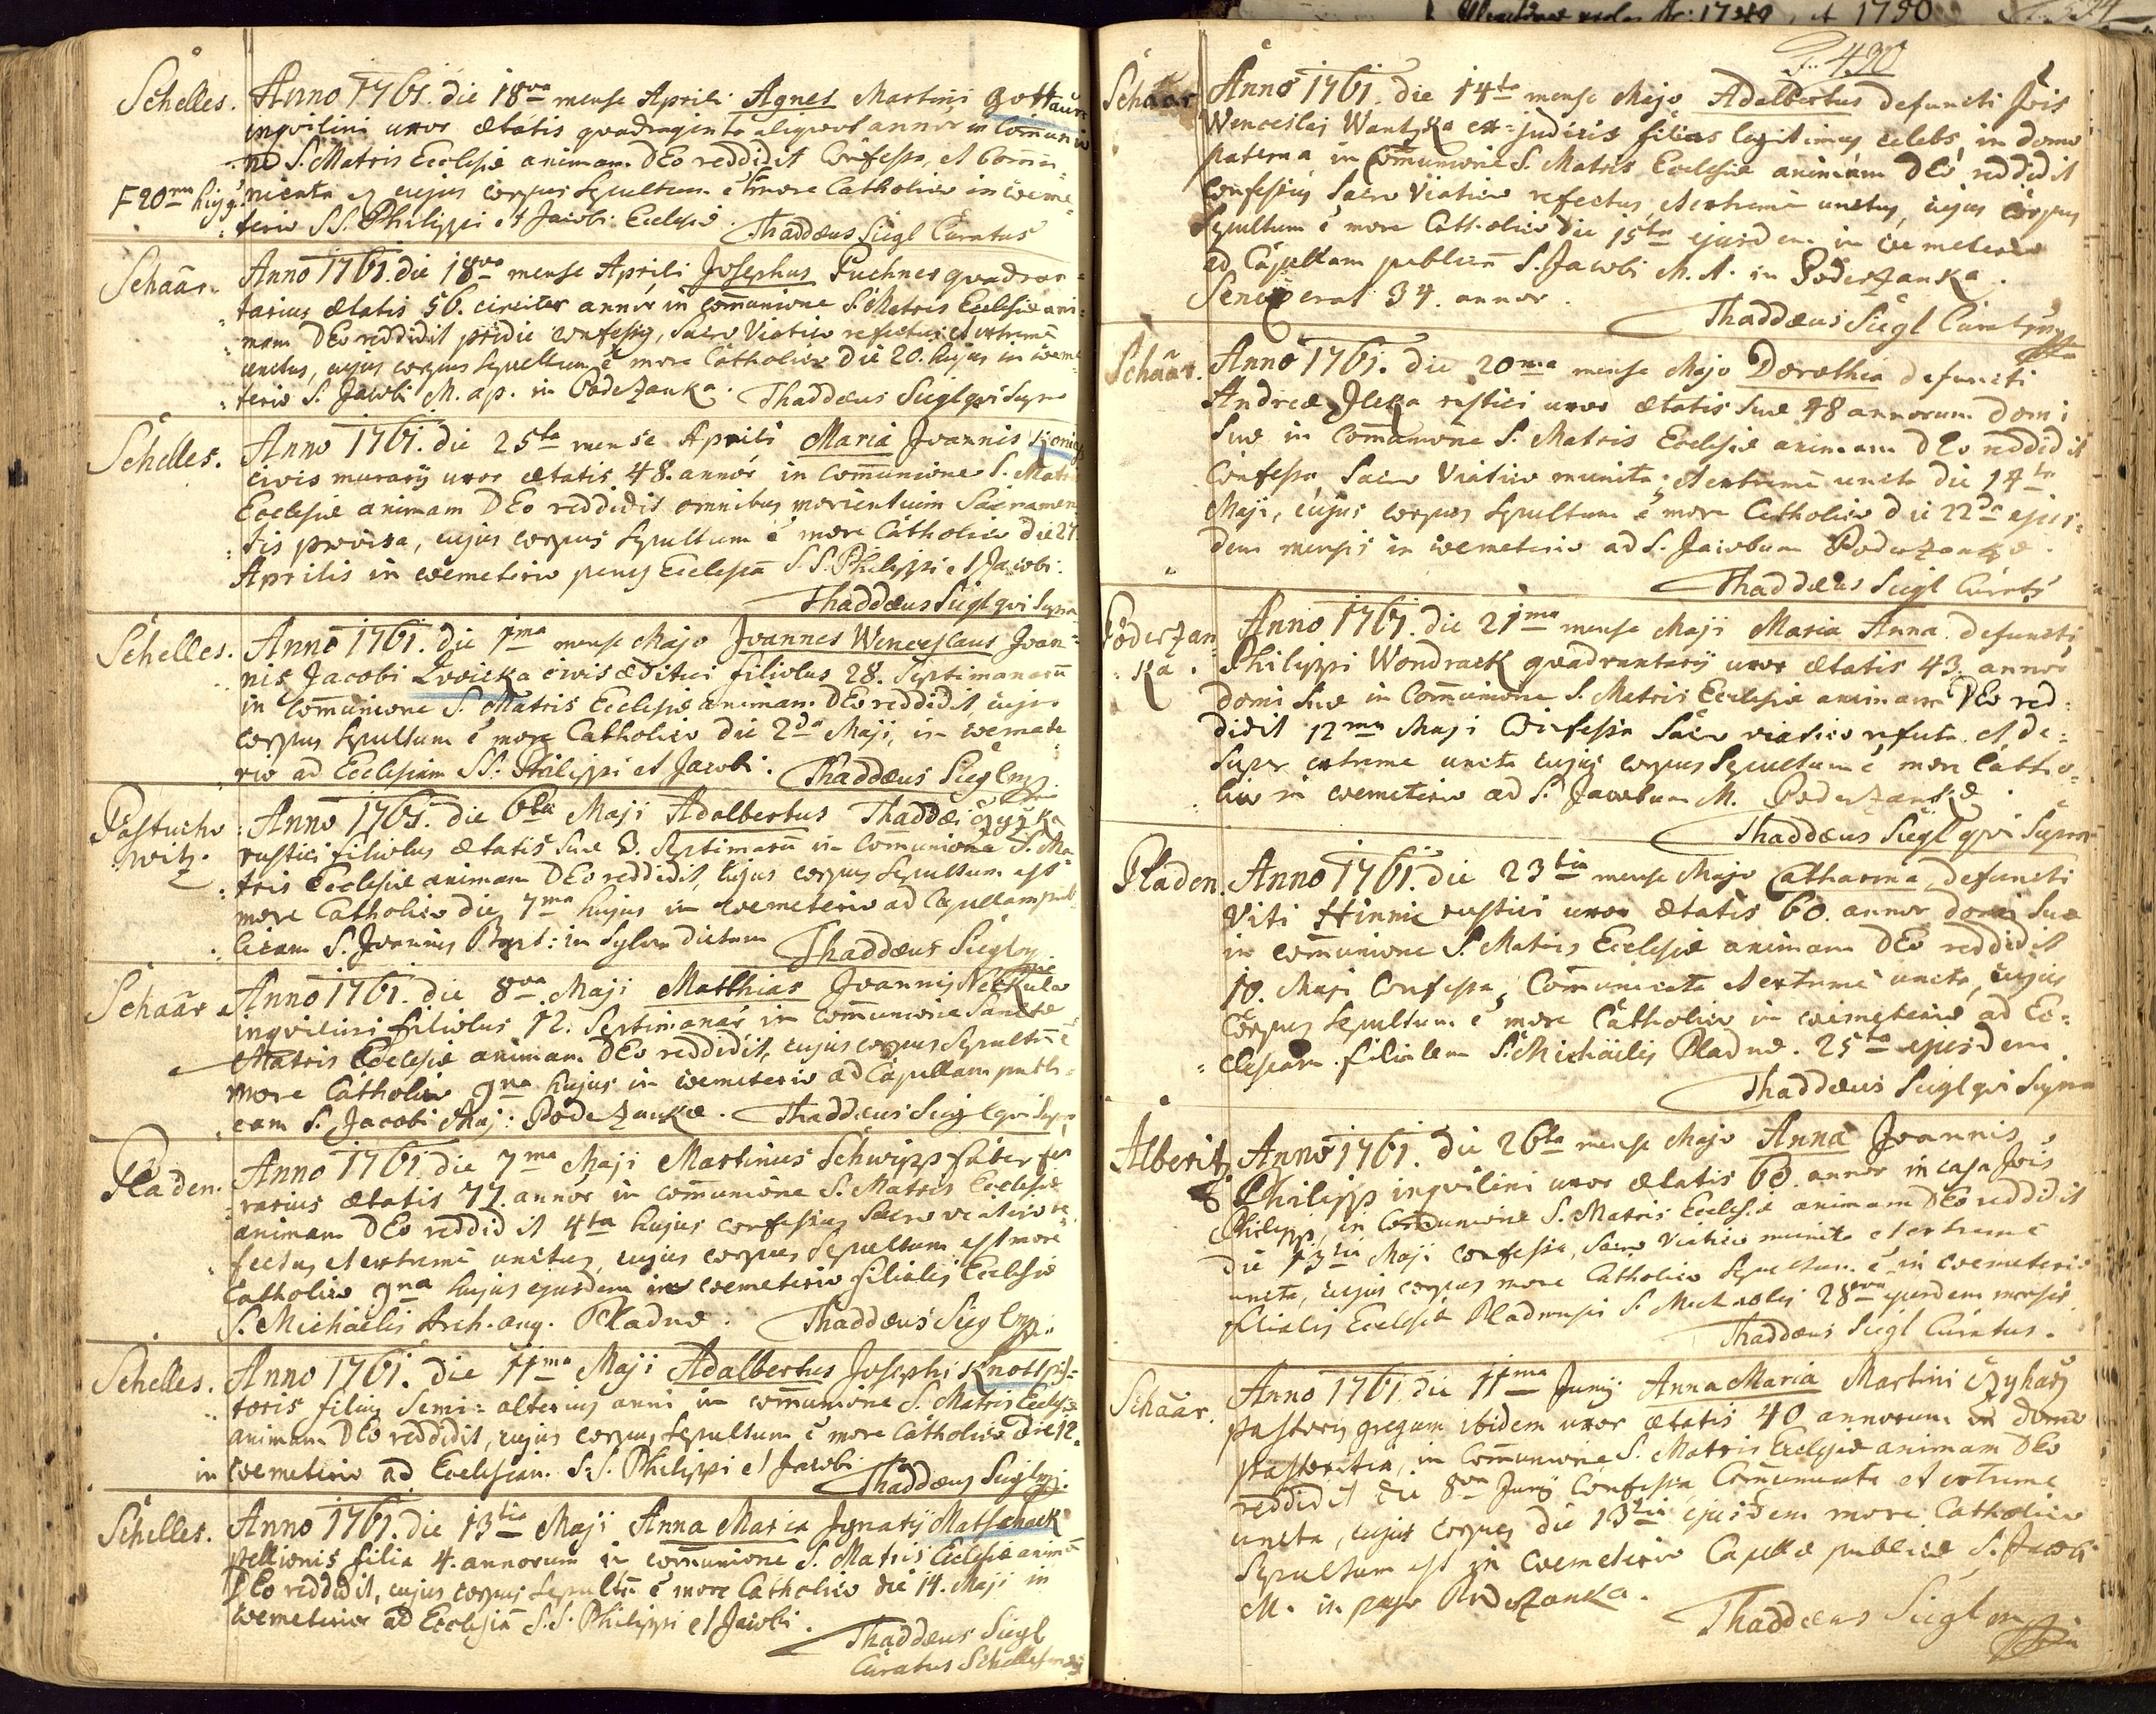 Schelles. Anno 1761. die 18va mense Aprili Agnes Martini
inqvilini uxor ætatis quadraginta aliquot annor in Comunio
ne S. Matris Ecclesiæ animam DEo reddidit Confessa, et Com̄u
F 20ma hujg. nicata cujus corpus sepultum ē more Catholico in cœme
terio SS. Philippi et Jacobi Ecclesiæ. Thaddæus Siegl Curatus
Schaar. Anno 1761. die 18va mense Aprili Josephus Puchner quadran=
tarius ætatis 56. circiter annor in com̄unione S. Matris Ecclesiæ ani=
mam DEo reddidit pridie confessg, Sacro Viatico refectus et extreme
unctus, cujus corpus sepultum ē more Catholico die 20. hujus in cœme
terio S. Jacobi M. ap. in Podezanka. Thaddæus Siegl qvi Supra
Schelles. Anno 1761. die 25ta mense Aprili Maria Joannis
civis murarij uxor ætatis 48. annor in com̄unione S. Matris
Ecclesiæ animam DEo reddidit omnibus morientium Sacramen
tis provisa, cujus corpus sepultum ē more Catholico die 27.
Aprilis in cœmeterio penes Ecclesiā S.S. Philippi et Jacobi.
Thaddæus Siegl qvi Supra
Schelles. Anno 1761. die 1ma mense Majo Joannes Wenceslaus Joan=
nis Jacobi civis æditui filiolus 28. Septimanarū
in com̄unione S. Matris Ecclesiæ animam DEo reddidit cujus
corpus sepultum ē more Catholico die 2da Maji, in cœmete
rio ad Ecclesiam SS. Philippi et Jacobi. Thaddæus Siegl mp.
Pastucho
witz. Anno 1761. die 6ta Maji Adalbertus Thaddæi
rustici filiolus ætatis suæ 3. Septimarū in Com̄unione S. Ma
tris Ecclesiæ animam DEo reddidit, cujus corpus sepultum est
more Catholico die 7ma hujus in cœmeterio ad Capellam pub
licam S. Joannis Bapt: in Sylva dictam Thaddæus Siegl mp
Schaar Anno 1761. die 8va Maji Matthias Joannis Nekula
inqvilini filiolus 12. Septimanar in com̄unione Sanctæ
Matris Ecclesiæ animam DEo reddidit, cujus corpus sepultū ē
more Catholico 9na hujus in cœmeterio ad Capellam publi=
cam S. Jacobi Maj: Podezankæ. Thaddæus Siegl qvi Supra
Pladen. Anno 1761. die 7ma Maji Martinus Schwipps faber fer
rarius ætatis 77. annor in com̄unione S. Matris Ecclesiæ
animam DEo reddidit 4ta hujus confessus Sacro viatico re
fectus, et extreme unctus, cujus corpus sepultum est more
Catholico 9na hujus ejusdem in cœmeterio filialis Ecclesiæ
S. Michaelis Arch. ang. Pladnæ. Thaddæus Siegl mp.
Schelles. Anno 1761. die 11ma Maji Adalbertus Josephi Knott pis=
toris filius Semi=alterius anni in com̄unione S. Matris Ecclesiæ
animam DEo reddidit, cujus corpus sepultum ē more Catholico die 12.
in cœmeterio ad Ecclesiam S.S. Philippi et Jacobi. Thaddæus Siegl mp.
Schelles. Anno 1761. die 13tia Maji Anna Maria Ignatij Matschaek
pellionis filia 4. annorum in com̄unione S. Matris Ecclesiæ animā
DEo reddidit, cujus corpus sepultū ē more Catholico die 14. Maji in
cœmeterio ad Ecclesiā S.S. Philippi et Jacobi.
Thaddæus Siegl
Curatus
1750
F. 430
Schaar Anno 1761. die 14ta mense Majo Adalbertus defuncti Jois
Wenceslaj Wantzka ex=judicis filius legitimus cælebs, in domo
paterna in Com̄unione S. Matris Ecclesiæ animam DEo reddidit
confessus Sacro Viatico refectus, et extreme unctus, cujus corpus
sepultum ē more Catholico die 15ta ejusdem in cœmeterio
ad Capellam publicā S. Jacobi M. A. in Poderzanka.
Senex erat 34. annor.
Thaddæus Siegl Curatus mp
Schaar. Anno 1761. die 20ma mense Majo Dorothea defuncti
Andreæ rustici uxor ætatis suæ 48 annorum domi
suæ in Com̄unione S. Matris Ecclesiæ animam DEo reddidit
Confessa, Sacro Viatico munita, et extreme uncta die 14ta
Maji, cujus corpus sepultum ē more Catholico die 22da ejus=
dem mensis in cœmeterio ad S. Jacobum Poderzankæ.
Thaddæus Siegl Curatus
Poderzan
ka. Anno 1761. die 21ma mense Maji Maria Anna defuncti
Philippi Wondraek quadrantarij uxor ætatis 43. annor
domi suæ in Com̄unione S. Matris Ecclesiæ animam DEo red=
didit 12ma Maji Confessa Sacro viatico refecta et de=
super extreme uncta cujus corpus sepultum ē more Catho=
lico in cœmeterio ad S. Jacobum M. Poderzankæ.
Thaddæus Siegl qvi Supra
Pladen. Anno 1761. die 23tia mense Majo Catharina defuncti
Viti Hinnie rustici uxor ætatis 60. annor domi suæ
in com̄unione S. Matris Ecclesiæ animam DEo reddidit
10. Maji Confessa, Com̄unicata et extreme uncta, cujus
corpus sepultum ē more Catholico in cœmeterio ad Ec=
clesiam filialem S. Michäelis Pladnæ. 25ta ejusdem.
Thaddæus Siegl qvi Supra
Alberitz Anno 1761. die 26ta mense Majo Anna Joannis
Philipp inqvilini uxor ætatis 60. annor in casa Jois
Philipp, in Com̄unione S. Matris Ecclesiæ animam DEo reddidit
die 13tia Maji confessa, Sacro Viatico munita et extreme
uncta, cujus corpus more Catholico sepultum ē in cœmeterio
filialis Ecclesiæ Pladnensis S. Michaelis 28va ejusdem mensis
Thaddæus Siegl Curatus.
Schaar. Anno 1761. die 11ma Junij Anna Maria Martini
pastoris gregum ibidem uxor ætatis 40 annorum in domo
pastoritia, in Com̄unione S. Matris Ecclesiæ animam DEo
reddidit die 8va Junij Confessa, Com̄unicata et extreme
uncta, cujus corpus die 13tia ejusdem more Catholico
sepultum est in cœmeterio Capellæ publicæ S. Jacobi
M. in pago Poderzanka.
Thaddæus Siegl mp